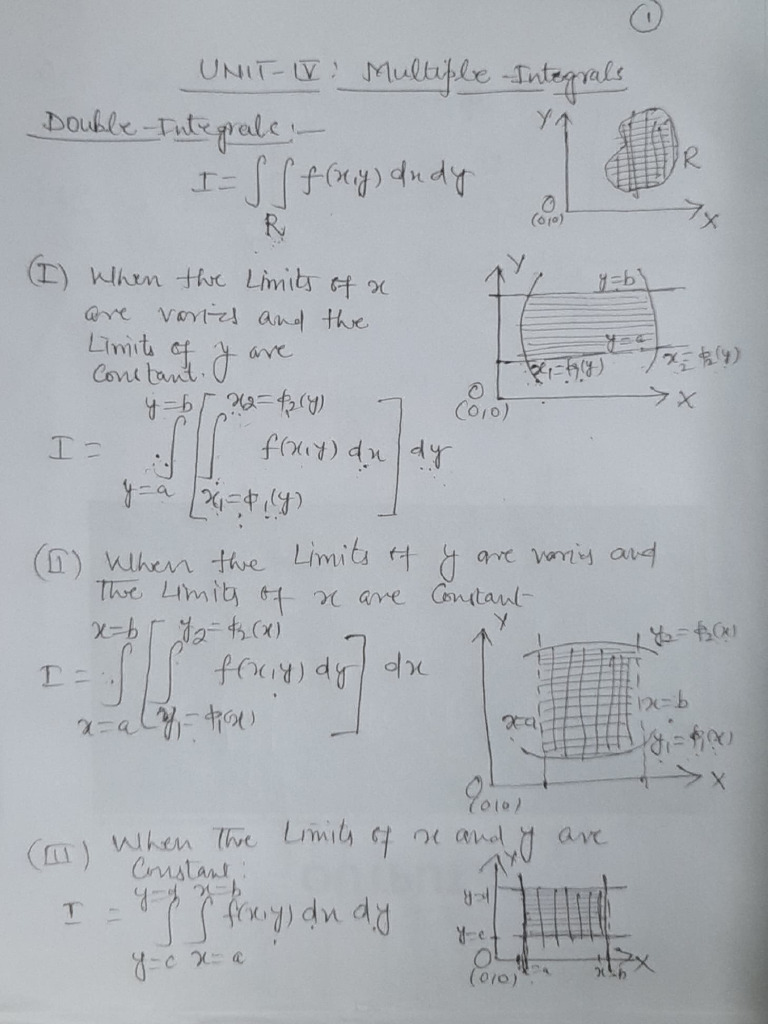 ①
UNIT-IV: Multiple-Integrals
Double-Integrals:-
I = ∫∫ f(x,y) dx dy
R
Y
R
O
(0,0)
X
(I) When the Limits of x
are varies and the
Limits of y are
Constant.
Y
y=b
y=a
x₁=ϕ₁(y)
x₂=ϕ₂(y)
O
(0,0)
X
y=b x₂=ϕ₂(y)
I = ∫ [∫ f(x,y) dx] dy
y=a x₁=ϕ₁(y)
(II) When the Limits of y are varies and
The Limits of x are Constant-
x=b y₂=ϕ₂(x)
I = ∫ [∫ f(x,y) dy] dx
x=a y₁=ϕ₁(x)
Y
y₂=ϕ₂(x)
x=a
x=b
y₁=ϕ₁(x)
O
(0,0)
X
(III) When The Limits of x and y are
Constant:
y=d x=b
I = ∫ ∫ f(x,y) dx dy
y=c x=a
Y
y=c
O
(0,0)
x=a
x=b
X